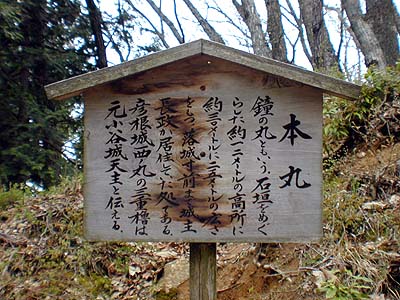 本丸
鐘の丸ともいう。石垣をめぐ
らした約一二メートルの高所に
約三〇メートルに二五メートルの広さ
をもつ。落城寸前まで城主
長政が居住していた処である。
彦根城西丸の三重櫓は
元小谷城天主と伝える。